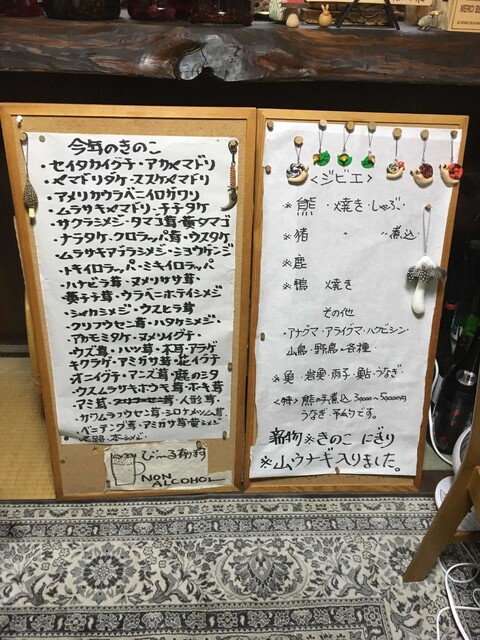 MERCI BE
今年のきのこ
・セイタカイグチ・アカヤマドリ
・ヤマドリタケ・ススケヤマドリ
・アメリカウラベニイロガワリ
・ムラサキヤマドリ・チチタケ
・サクラシメジ・タマゴ茸・黄タマゴ
・ナラタケ・クロラッパ茸・ウスタケ
・ムラサキアブラシメジ・ショウゲンジ
・トキイロラッパ・ミキイロラッパ
・ハナビラ茸・ヌメリササ茸
・黄チチ茸・ウラベニホテイシメジ
・シャカシメジ・ウスヒラ茸
・クリフウセン茸・ハタケシメジ
・アカモミタケ・ヌメリイグチ
・ウズ茸・ハツ茸・木耳・アラゲ
キクラゲ・アミガサ茸・
オニイグチ・アンズ茸・鹿のシタ
・ウスムラサキホウキ茸・ホキ茸
・アミ茸・人形茸
・カワムラフウセン茸・シロナメツムタケ
・ベニテング茸・アミガサ茸・黄シメジ
・本シメジ
びーる
NON
ALCOHOL
<ジビエ>
※熊・焼き・しゃぶ・
※猪 〃 〃 煮込
※鹿
※鴨 焼き
その他
・アナグマ・アライグマ・ハクビシン
山鳥・野鳥・各種
※魚・岩魚・雨子・鮎・うなぎ
<特>熊の手煮込 30000〜50000円
うなぎ・予約です。
新物※きのこ にぎり
※山ウナギ入りました。